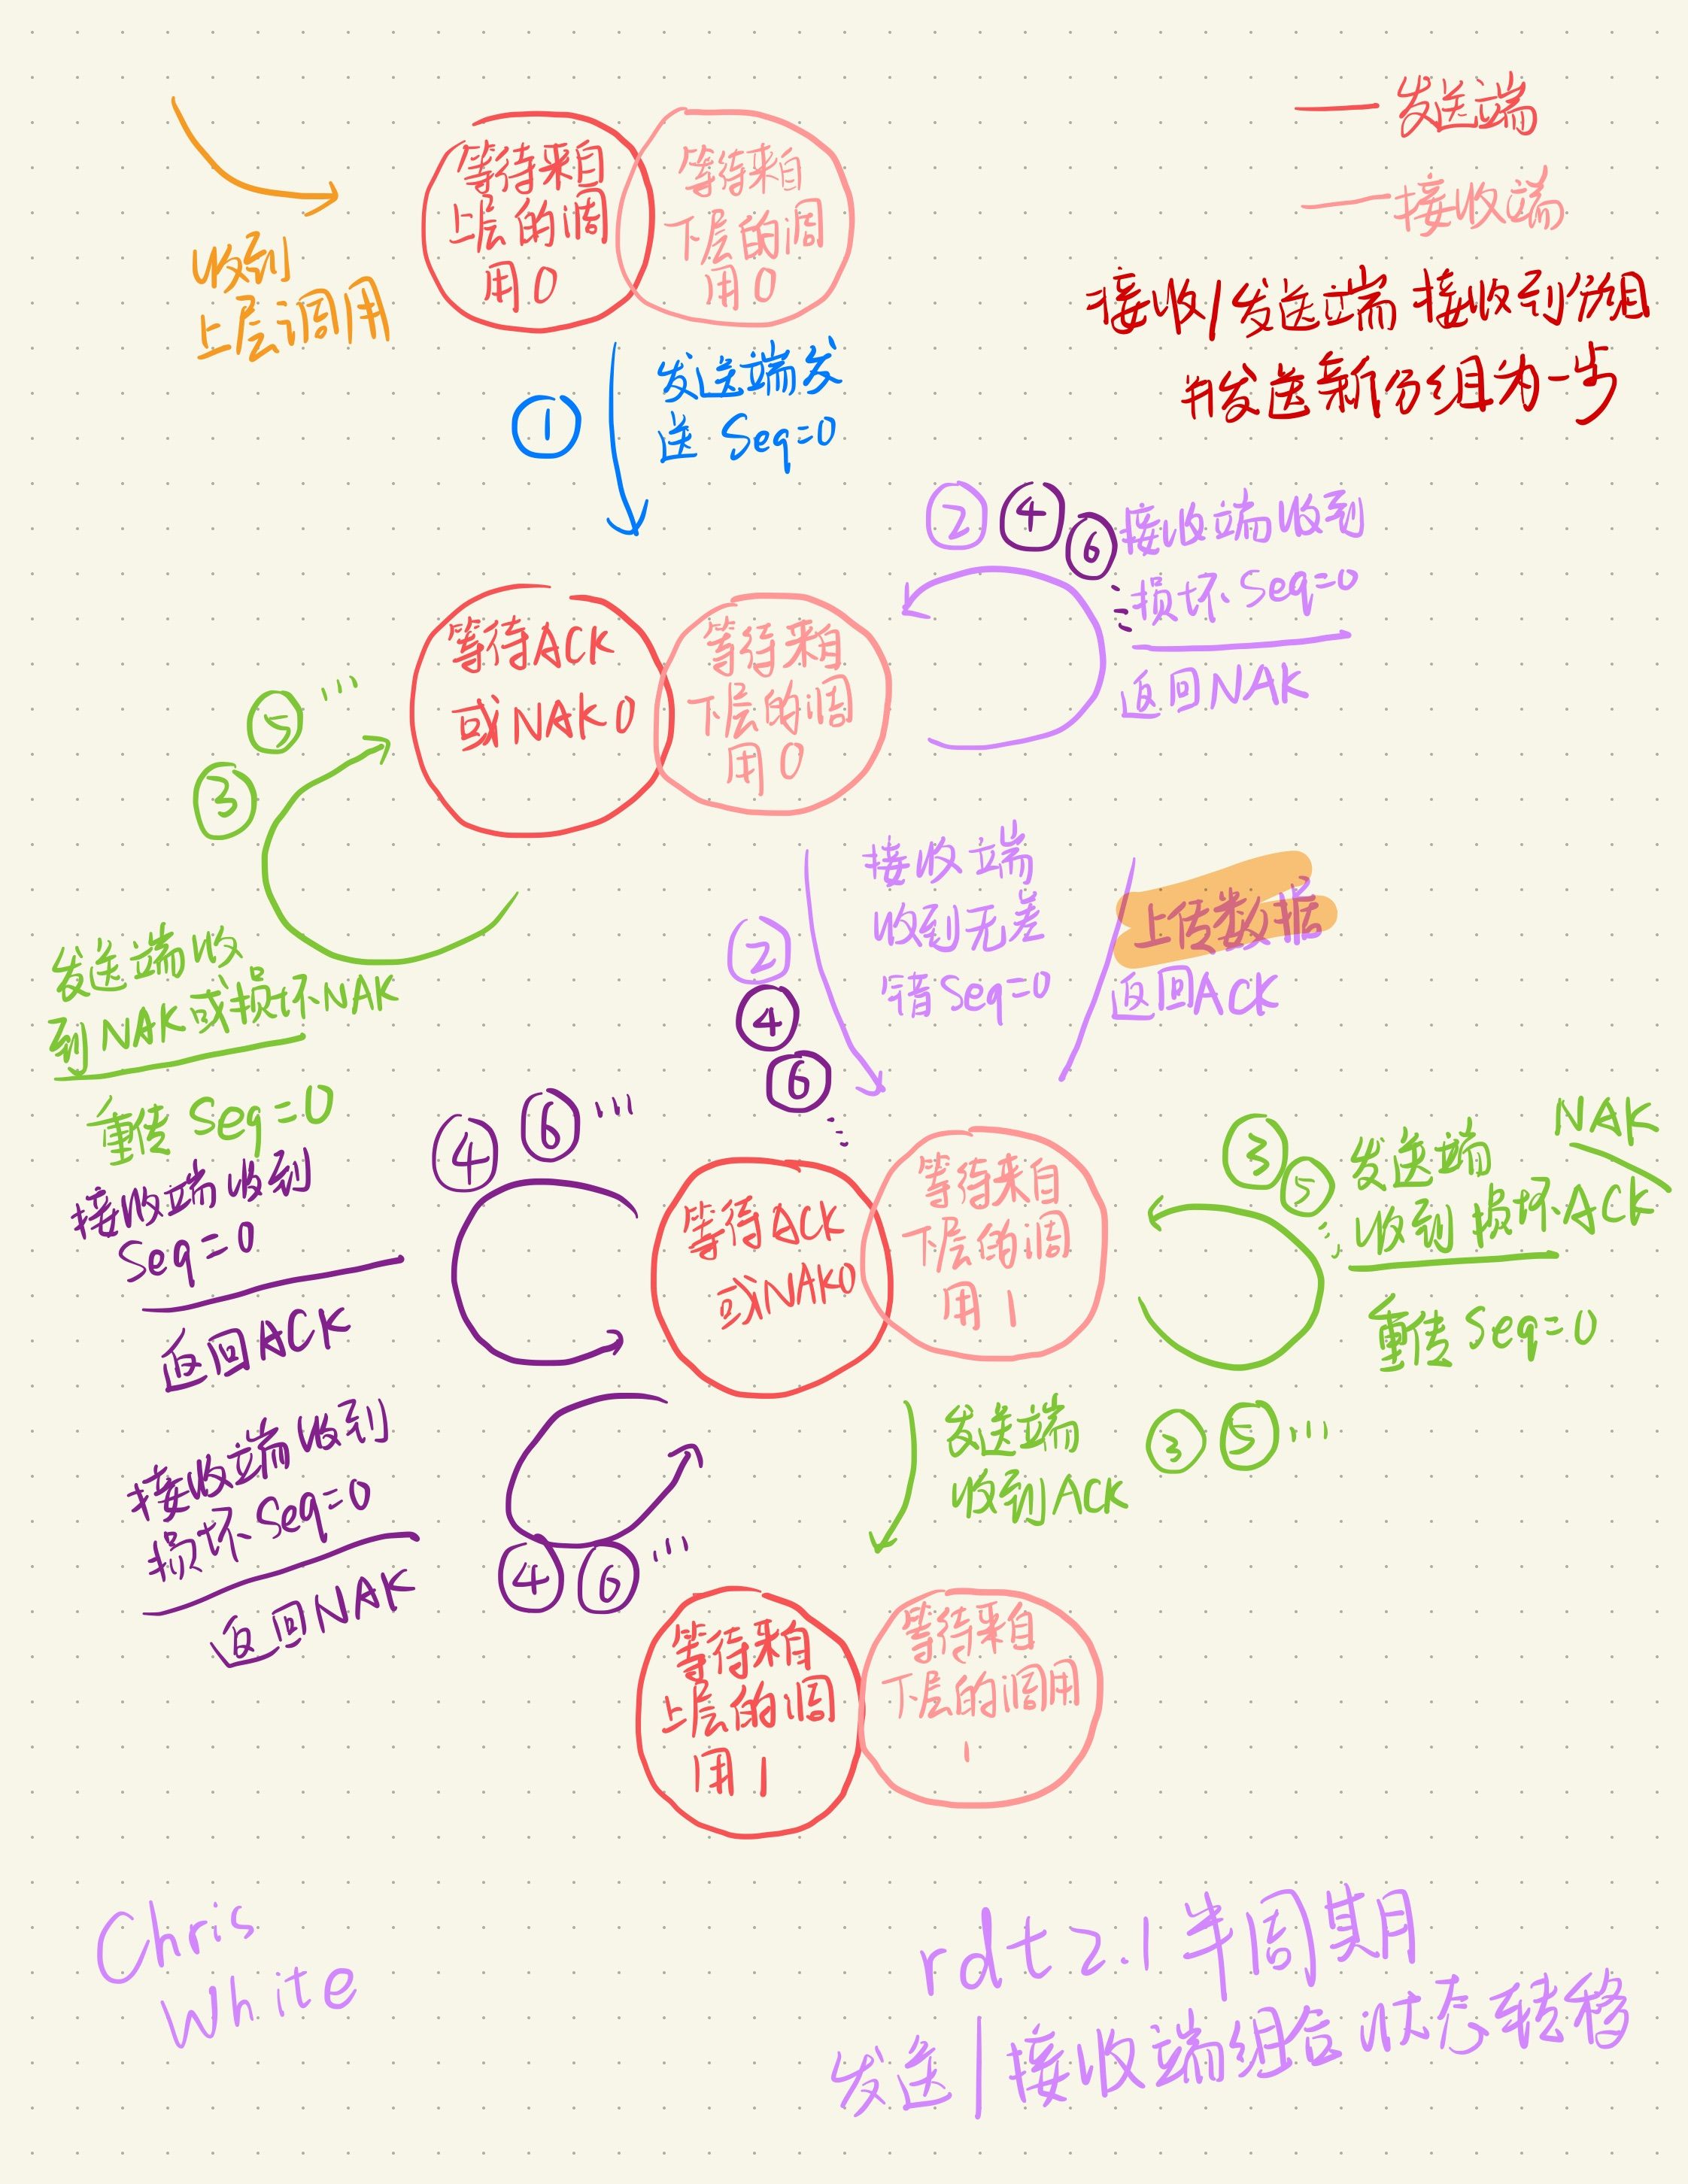 收到
上层调用
等待来自
上层的调
用0
等待来自
下层的调
用0
发送端
接收端
接收/发送端 接收到分组
并发送新分组为一步
①
发送端发
送 Seq=0
② ④ ⑥
接收端收到
损坏 Seq=0
返回NAK
等待ACK
或NAK0
等待来自
下层的调
用0
③ ⑤ ...
发送端收
到NAK或损坏NAK
重传 Seq=0
②
④
⑥
...
接收端
收到无差
错Seq=0
上传数据
返回ACK
④ ⑥ ...
接收端收到
Seq=0
返回ACK
等待ACK
或NAK0
等待来自
下层的调
用1
③ ⑤ ...
发送端 NAK
收到损坏ACK
重传 Seq=0
接收端收到
损坏Seq=0
返回NAK
④ ⑥ ...
发送端
收到ACK
③ ⑤ ...
等待来自
上层的调
用1
等待来自
下层的调用
1
Chris
White
rdt2.1半周期
发送/接收端组合状态转移